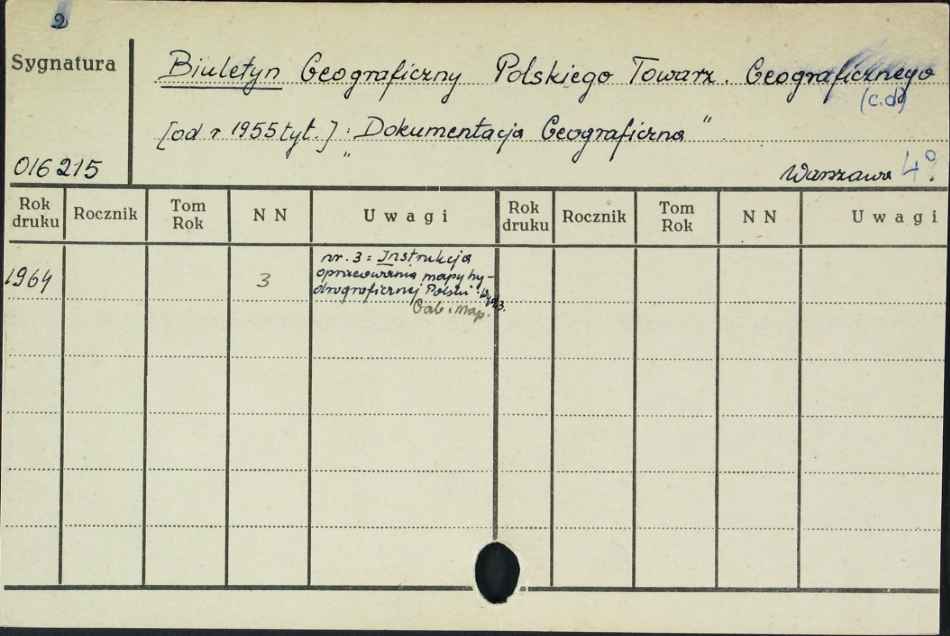 2
Sygnatura
Biuletyn Geograficzny Polskiego Towarz. Geograficznego
(c.d.)
[od r 1955 tyt.] : "Dokumentacja Geograficzna"
016215
Warszawa 4°
Rok druku Rocznik Tom Rok N N Uwagi Rok druku Rocznik Tom Rok N N Uwagi
1964 3 nr. 3 = Instrukcja
opracowania mapy hy-
drograficznej Polski
Gab. Map.